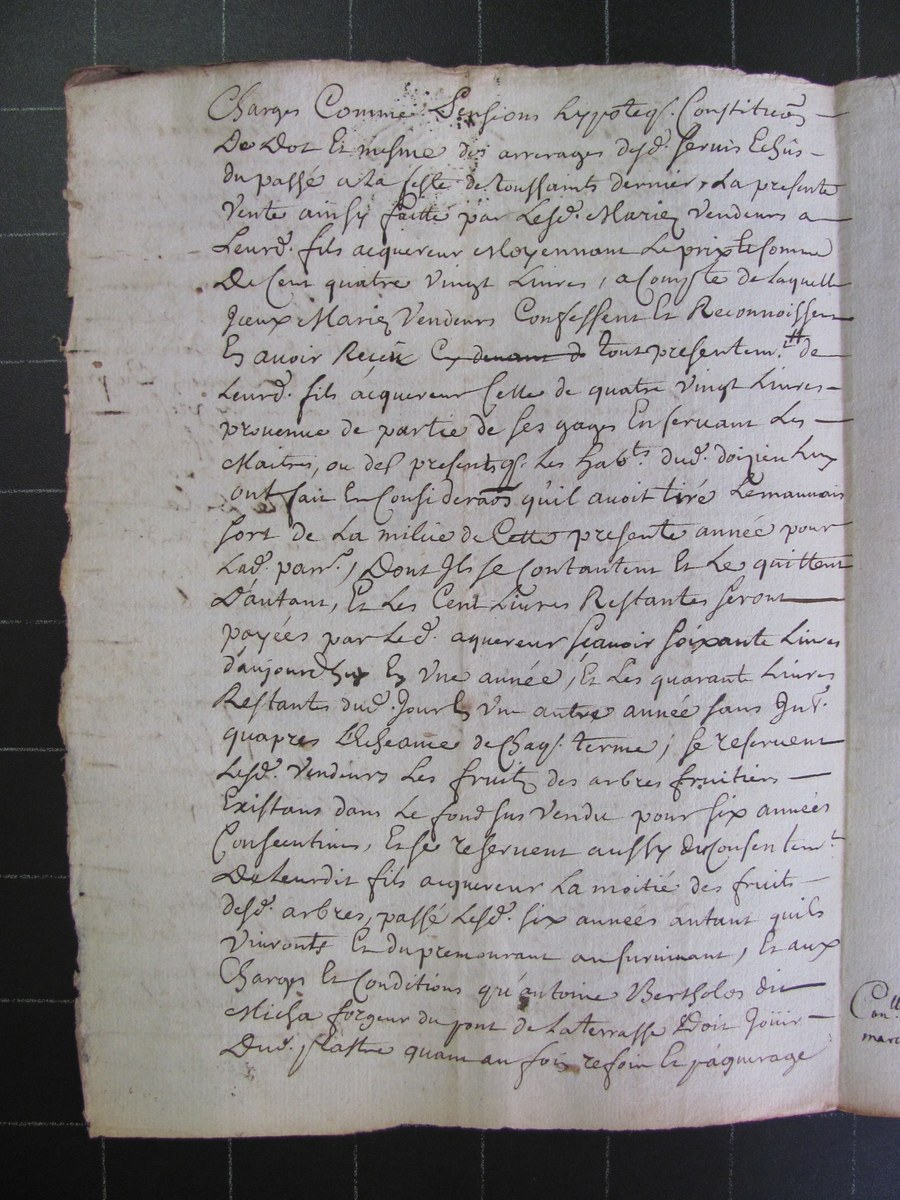 Charges Comme Pensions hypoteq. Constituõns
De Dot Et mesme des arrerages desd. servis Echûs
du passé a la feste de toussaints dernier, La presente
Vente ainsy faitte par Lesd. Mariez Vendeurs a
Leurd. fils acquereur Moyennant Le prix et somme
De Cent quatre Vingt Livres, a Compte de laquelle
Iceux Mariez Vendeurs Confessent Et Reconnoissent
En avoir Receu Cy devant d tout presentem.t # de
Leurd. fils acquereur Celle de quatre Vingt Livres
provenue de partie de ses gages En servant Les
Maitres, ou des presents q. les hab.ts dud. doizieu luy
ont fait En Consideraõn qu'il avoit tiré Le mauvais
sort de La milice de Cette presente année pour
Lad. parr., Dont Ils se Contantent Et Le quittent
D'autant, Et Les Cent Livres Restantes seront
payées par Led. aquereur sçavoir soixante Livres
d'aujourd'huy En Une année, Et Les quarante Livres
Restants dud. Jour En Une autre année sans Int.
quapres Echeance de Chaq. terme, se reservent
Lesd. Vendeurs Les fruits des arbres fruitiers
Existans dans Le fond sus Vendu pour six années
Consecutives, Et se reservent aussy du Consentem.t
De Leurdit fils acquereur La moitié des fruits
desd. arbres, passé Lesd. six années autant quils
Vivronts Et du premourant au survivant, Et aux
Charges Et Conditions qu'antoine Bertholos dit
Micha forgeur du pont de La terrasse Doit Joüir
Dud. plastre quant au foin refoin Et pâquerage
Coll
marc